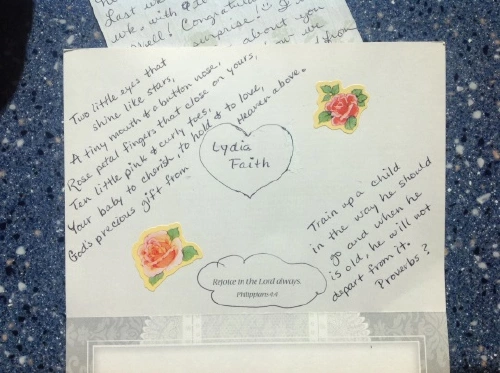 Last we
wk. with
well! Congratu
surprise!
about you
we
from
Two little eyes that
shine like stars,
A tiny mouth & button nose,
Rose petal fingers that close on yours,
Ten little pink & curly toes,
Your baby to cherish, to hold & to love,
God's precious gift from Heaven above.
Lydia
Faith
Train up a child
in the way he should
go and when he
is old, he will not
depart from it.
Proverbs ?
Rejoice in the Lord always.
Philippians 4:4